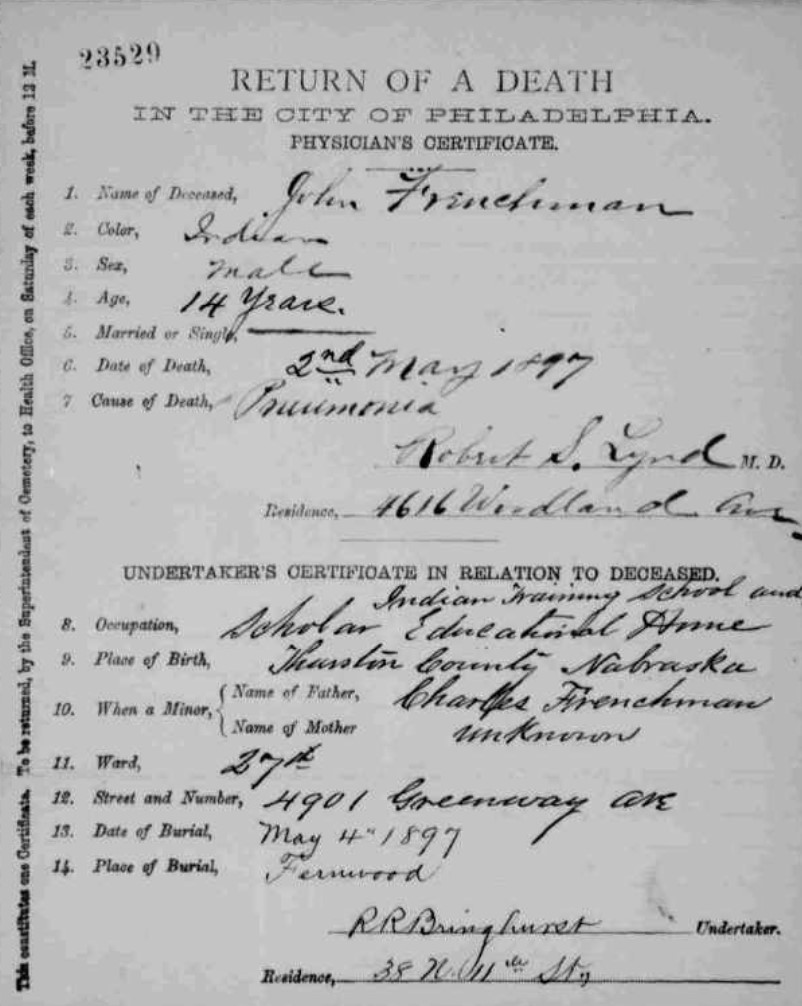 23529
RETURN OF A DEATH
IN THE CITY OF PHILADELPHIA.
PHYSICIAN'S CERTIFICATE.
1. Name of Deceased, John Frenchman
2. Color, Indian
3. Sex, Male
4. Age, 14 Years.
5. Married or Single,
6. Date of Death, 2nd May 1897
7 Cause of Death, Pneumonia
Robert S. Lynd M. D.
Residence, 4616 Woodland Ave
UNDERTAKER'S CERTIFICATE IN RELATION TO DECEASED.
Indian Training School and
8. Occupation, Scholar Educational Home
9. Place of Birth, Thurston County Nabraska
10. When a Minor, Name of Father, Charles Frenchman
Name of Mother unknown
11. Ward, 27th
12. Street and Number, 4901 Greenway Ave
13. Date of Burial, May 4" 1897
14. Place of Burial, Fernwood
R R Bringhurst Undertaker.
Residence, 38 N. 11th St,
This constitutes one Certificate. To be returned, by the Superintendent of Cemetery, to Health Office, on Saturday of each week, before 12 M.